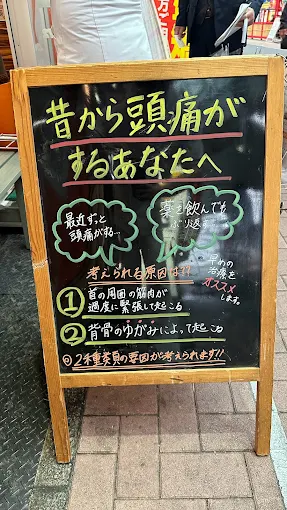 昔から頭痛が
するあなたへ
最近ずっと
頭痛がする…
薬を飲んでも
ぶり返す…
考えられる原因は??
早めの
治療を
オススメ
します。
① 首の周囲の筋肉が
過度に緊張して起こる
② 背骨のゆがみによって起こる
◎ 2種類の要因が考えられます!!